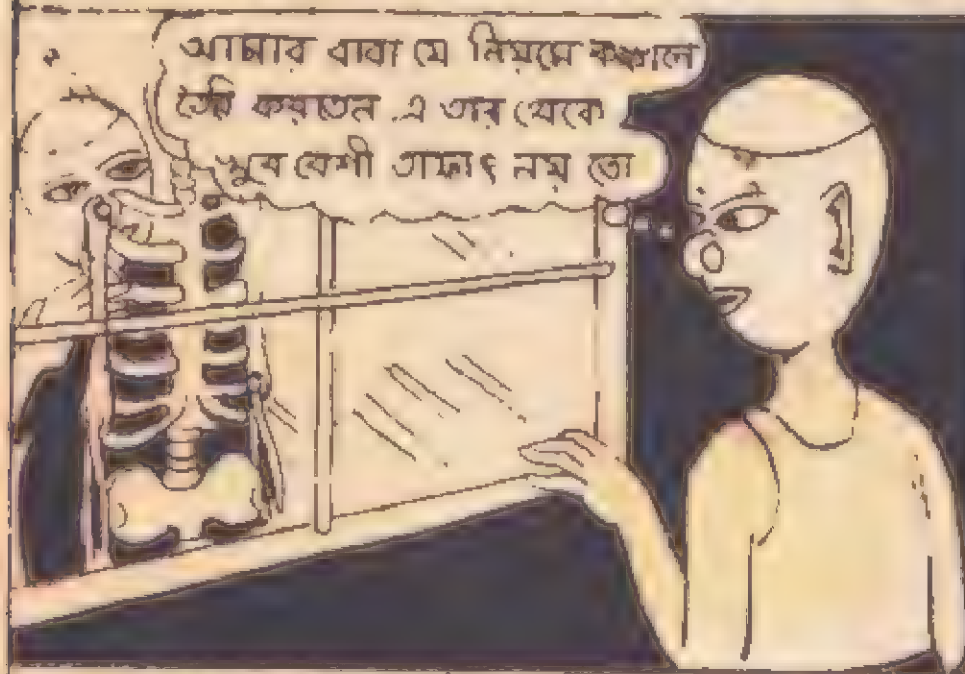 আমার বাবা যে নিয়মে কঙ্কাল
তৈরি করতেন এ তার থেকে
খুব বেশী তফাৎ নয় তো